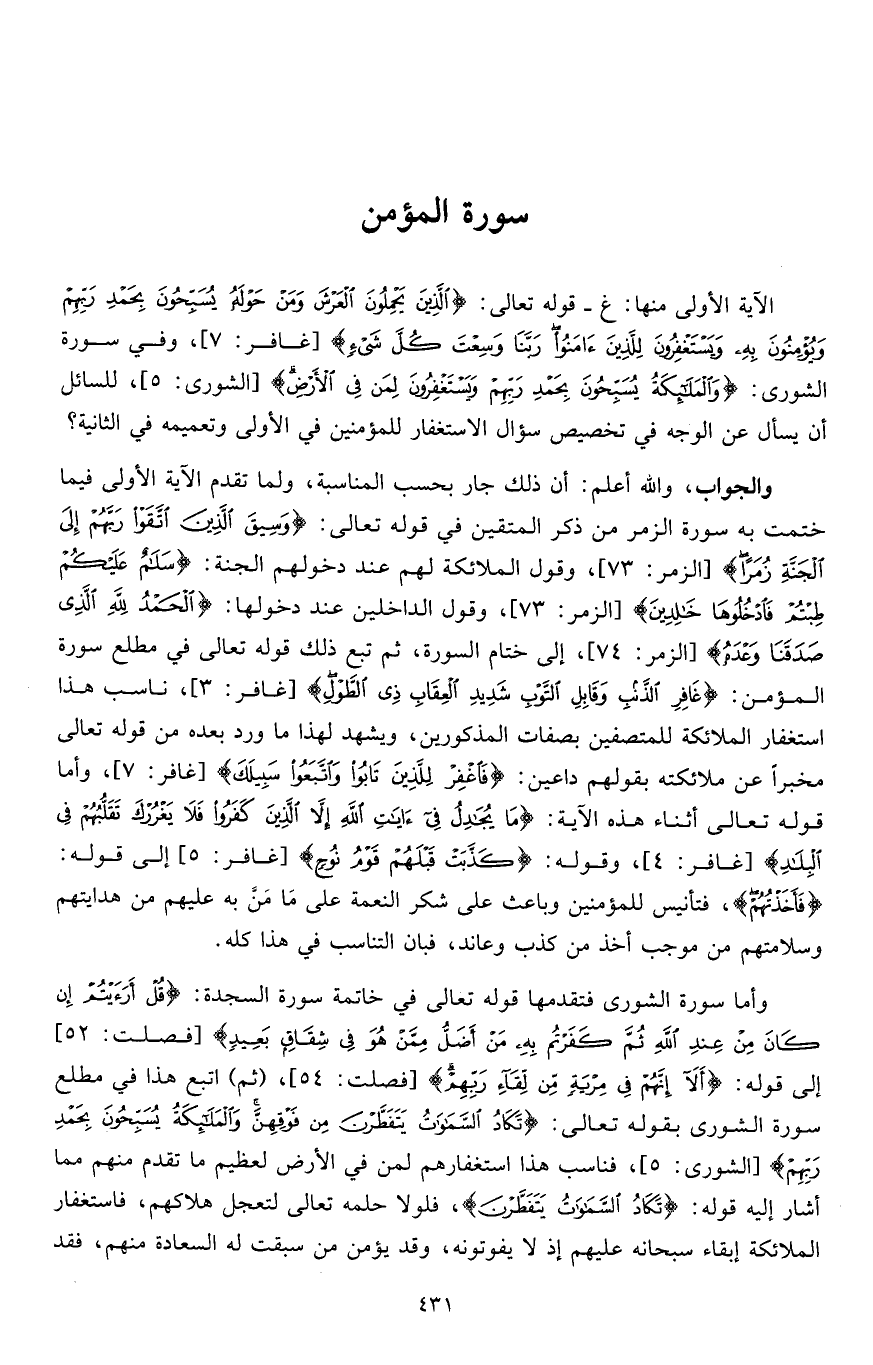 سورة المؤمن
الآية الأولى منها: غ - قوله تعالى: ﴿ٱلَّذِينَ يَحْمِلُونَ ٱلْعَرْشَ وَمَنْ حَوْلَهُۥ يُسَبِّحُونَ بِحَمْدِ رَبِّهِمْ
وَيُؤْمِنُونَ بِهِۦ وَيَسْتَغْفِرُونَ لِلَّذِينَ ءَامَنُوا۟ۖ رَبَّنَا وَسِعْتَ كُلَّ شَىْءٍ﴾ [غافر: ٧]، وفي سورة
الشورى: ﴿وَٱلْمَلَـٰٓئِكَةُ يُسَبِّحُونَ بِحَمْدِ رَبِّهِمْ وَيَسْتَغْفِرُونَ لِمَن فِى ٱلْأَرْضِۗ﴾ [الشورى: ٥]، للسائل
أن يسأل عن الوجه في تخصيص سؤال الاستغفار للمؤمنين في الأولى وتعميمه في الثانية؟
والجواب، والله أعلم: أن ذلك جار بحسب المناسبة، ولما تقدم الآية الأولى فيما
ختمت به سورة الزمر من ذكر المتقين في قوله تعالى: ﴿وَسِيقَ ٱلَّذِينَ ٱتَّقَوْا۟ رَبَّهُمْ إِلَى
ٱلْجَنَّةِ زُمَرًاۖ﴾ [الزمر: ٧٣]، وقول الملائكة لهم عند دخولهم الجنة: ﴿سَلَـٰمٌ عَلَيْكُمْ
طِبْتُمْ فَٱدْخُلُوهَا خَـٰلِدِينَ﴾ [الزمر: ٧٣]، وقول الداخلين عند دخولها: ﴿ٱلْحَمْدُ لِلَّهِ ٱلَّذِى
صَدَقَنَا وَعْدَهُۥ﴾ [الزمر: ٧٤]، إلى ختام السورة، ثم تبع ذلك قوله تعالى في مطلع سورة
المؤمن: ﴿غَافِرِ ٱلذَّنۢبِ وَقَابِلِ ٱلتَّوْبِ شَدِيدِ ٱلْعِقَابِ ذِى ٱلطَّوْلِۖ﴾ [غافر: ٣]، ناسب هذا
استغفار الملائكة للمتصفين بصفات المذكورين، ويشهد لهذا ما ورد بعده من قوله تعالى
مخبراً عن ملائكته بقولهم داعين: ﴿فَٱغْفِرْ لِلَّذِينَ تَابُوا۟ وَٱتَّبَعُوا۟ سَبِيلَكَ﴾ [غافر: ٧]، وأما
قوله تعالى أثناء هذه الآية: ﴿مَا يُجَـٰدِلُ فِىٓ ءَايَـٰتِ ٱللَّهِ إِلَّا ٱلَّذِينَ كَفَرُوا۟ فَلَا يَغْرُرْكَ تَقَلُّبُهُمْ فِى
ٱلْبِلَـٰدِ﴾ [غافر: ٤]، وقوله: ﴿كَذَّبَتْ قَبْلَهُمْ قَوْمُ نُوحٍ﴾ [غافر: ٥] إلى قوله:
﴿فَأَخَذْتُهُمْۖ﴾، فتأنيس للمؤمنين وباعث على شكر النعمة على مَا مَنَّ به عليهم من هدايتهم
وسلامتهم من موجب أخذ من كذب وعاند، فبان التناسب في هذا كله.
وأما سورة الشورى فتقدمها قوله تعالى في خاتمة سورة السجدة: ﴿قُلْ أَرَءَيْتُمْ إِن
كَانَ مِنْ عِندِ ٱللَّهِ ثُمَّ كَفَرْتُم بِهِۦ مَنْ أَضَلُّ مِمَّنْ هُوَ فِى شِقَاقٍۭ بَعِيدٍ﴾ [فصلت: ٥٢]
إلى قوله: ﴿أَلَآ إِنَّهُمْ فِى مِرْيَةٍ مِّن لِّقَآءِ رَبِّهِمْۗ﴾ [فصلت: ٥٤]، (ثم) اتبع هذا في مطلع
سورة الشورى بقوله تعالى: ﴿تَكَادُ ٱلسَّمَـٰوَٰتُ يَتَفَطَّرْنَ مِن فَوْقِهِنَّۚ وَٱلْمَلَـٰٓئِكَةُ يُسَبِّحُونَ بِحَمْدِ
رَبِّهِمْ﴾ [الشورى: ٥]، فناسب هذا استغفارهم لمن في الأرض لعظيم ما تقدم منهم مما
أشار إليه قوله: ﴿تَكَادُ ٱلسَّمَـٰوَٰتُ يَتَفَطَّرْنَ﴾، فلولا حلمه تعالى لتعجل هلاكهم، فاستغفار
الملائكة إبقاء سبحانه عليهم إذ لا يفوتونه، وقد يؤمن من سبقت له السعادة منهم، فقد
٤٣١